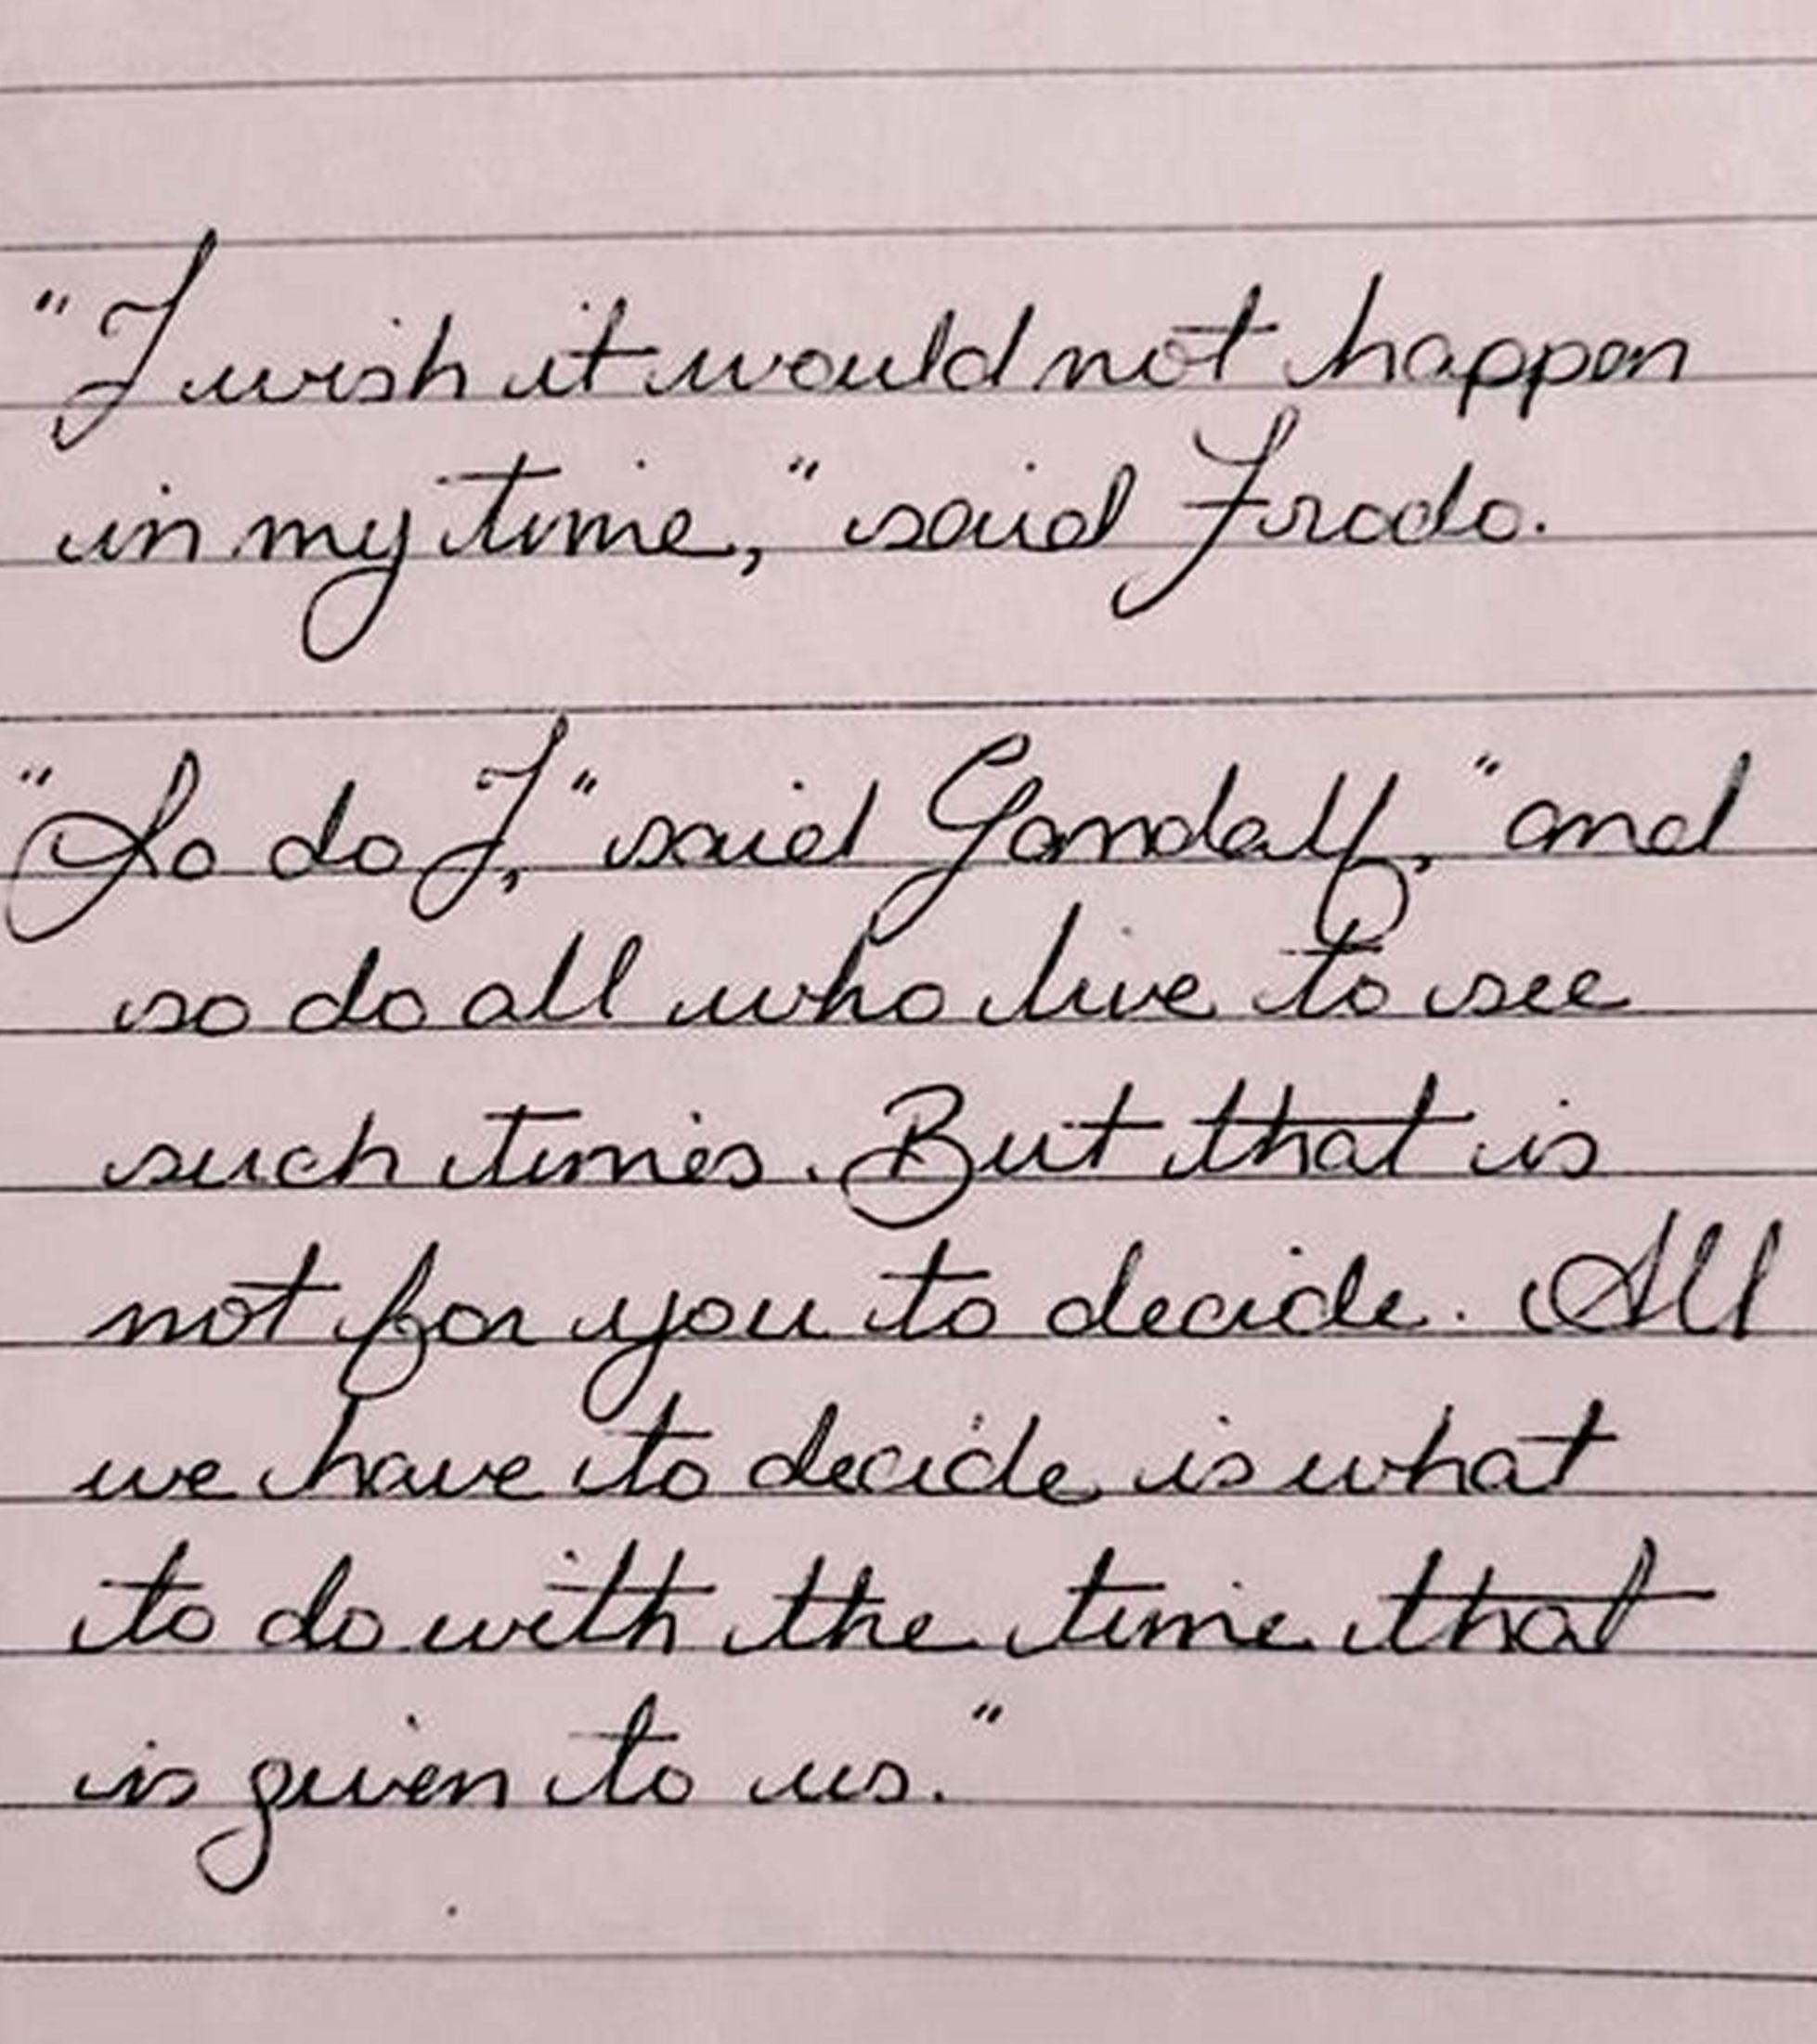 "I wish it would not happen
in my time," said Frodo.
"So do I," said Gandalf, "and
so do all who live to see
such times. But that is
not for you to decide. All
we have to decide is what
to do with the time that
is given to us."